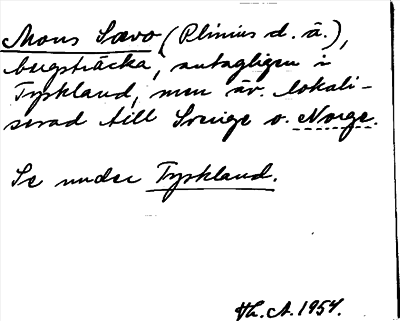 Mons Sævo (Plinius d. ä.),
bergsträcka, antagligen i
Tyskland, men äv. lokali-
serad till Sverige o. Norge.
Se under Tyskland.
Th. A. 1954.